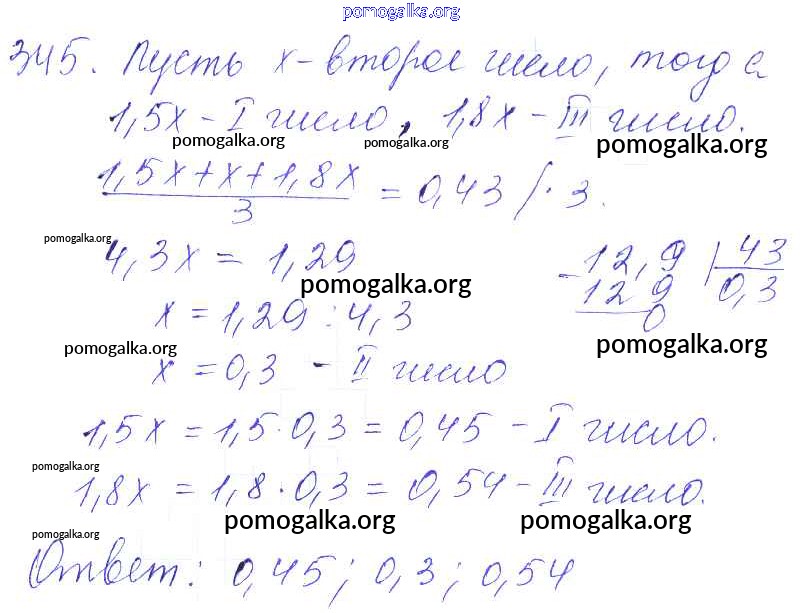 pomogalka.org
345. Пусть x – второе число, тогда
1,5x – I число, 1,8x – III число.
pomogalka.org pomogalka.org pomogalka.org
1,5x + x + 1,8x
3
= 0,43 / · 3.
pomogalka.org
4,3x = 1,29
pomogalka.org
x = 1,29 : 4,3
– 12,9 | 43
129 0,3
0
pomogalka.org pomogalka.org
x = 0,3 – II число
1,5x = 1,5 · 0,3 = 0,45 – I число.
pomogalka.org
1,8x = 1,8 · 0,3 = 0,54 – III число.
pomogalka.org pomogalka.org pomogalka.org
Ответ: 0,45; 0,3; 0,54